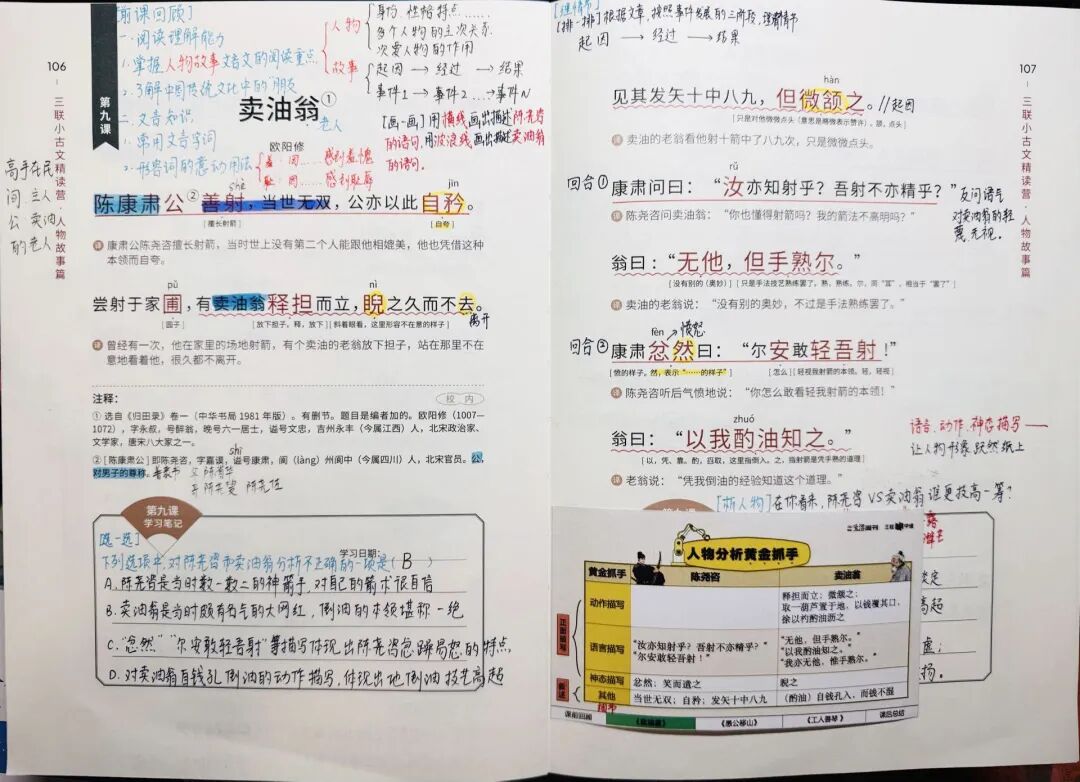 [新课回顾]
一. 阅读理解能力
1. 掌握人物故事文言文的阅读重点
2. 了解中国传统文化中的"朋友"
二. 文言知识
1. 常用文言字词
2. 形容词的意动用法
羞: 因……感到羞愧
耻: 因……感到耻辱
人物
身份、性格特点……
各个人物的主次关系
次要人物的作用
故事
起因→经过→结果
事件1→事件2……→事件N
106
三联小古文精读营·人物故事篇
第九课
卖油翁①
老人
欧阳修
[画一画]用横线画出描述陈尧咨
的语句,用波浪线画出描述卖油翁
的语句。
高手在民
间,主人
公 卖油
的老人
shè
jīn
陈康肃公②善射,当世无双,公亦以此自矜。
[擅长射箭]
[自夸]
译 康肃公陈尧咨擅长射箭,当时世上没有第二个人能跟他相媲美,他也凭借这种
本领而自夸。
pǔ
nì
尝射于家圃,有卖油翁释担而立,睨之久而不去。
离开
[园子]
[放下担子。释,放下]
[斜着眼看,这里形容不在意的样子]
译 曾经有一次,他在家里的场地射箭,有个卖油的老翁放下担子,站在那里不在
意地看着他,很久都不离开。
注释:
校 内
① 选自《归田录》卷一(中华书局 1981 年版)。有删节。题目是编者加的。欧阳修(1007—
1072),字永叔,号醉翁,晚号六一居士,谥号文忠,吉州永丰(今属江西)人,北宋政治家、
文学家,唐宋八大家之一。
shì
② [陈康肃公]即陈尧咨,字嘉谟,谥号康肃,阆(làng)州阆中(今属四川)人,北宋官员。公,
对男子的尊称。
第九课
学习笔记
学习日期:
[选一选]
下列选项中,对陈尧咨和卖油翁分析不正确的一项是( B )
A. 陈尧咨是当时数一数二的神箭手,对自己的箭术很自信
B. 卖油翁是当时颇有名气的大网红,倒油的本领堪称一绝
C. "忿然""尔安敢轻吾射"等描写体现出陈尧咨急躁易怒的特点
D. 对卖油翁自钱孔倒油的动作描写,体现出他倒油技艺高超
[理情节]
[排一排]根据文章,按照事件发展的三阶段,理清情节
起因→经过→结果
107
三联小古文精读营·人物故事篇
hàn
见其发矢十中八九,但微颔之。//起因
[只是对他微微点头(意思是略微表示赞许)。颔,点头]
译 卖油的老翁看他射十箭中了八九次,只是微微点头。
rǔ
回合①
康肃问曰:"汝亦知射乎?吾射不亦精乎?"
反问语气
对卖油翁的轻
蔑、无视。
译 陈尧咨问卖油翁:"你也懂得射箭吗?我的箭法不高明吗?"
翁曰:"无他,但手熟尔。"
[没有别的(奥妙)]
[只是手法技艺熟练罢了。熟,熟练。尔,同"耳",相当于"罢了"]
译 卖油的老翁说:"没有别的奥妙,不过是手法熟练罢了。"
fèn→愤怒
回合②
康肃忿然曰:"尔安敢轻吾射!"
[愤的样子。然,表示"……的样子"]
[怎么]
[轻视我射箭的本领。轻,轻视]
译 陈尧咨听后气愤地说:"你怎么敢看轻我射箭的本领!"
zhuó
翁曰:"以我酌油知之。"
[以,凭、靠。酌,舀取,这里指倒入。之,指射箭是凭手熟的道理]
译 老翁说:"凭我倒油的经验知道这个道理。"
语言、动作、神态描写——
让人物形象跃然纸上
[析人物]在你看来,陈尧咨 VS 卖油翁谁更技高一筹?
人物分析黄金抓手
黄金抓手
陈尧咨
卖油翁
正面描写
动作描写
释担而立;微颔之;
取一葫芦置于地,以钱覆其口,
徐以杓酌油沥之
语言描写
"汝亦知射乎?吾射不亦精乎?"
"尔安敢轻吾射!"
"无他,但手熟尔。"
"以我酌油知之。"
"我亦无他,惟手熟尔。"
神态描写
忿然;笑而遣之
睨之
其他
当世无双;自矜;发矢十中八九
(酌油)自钱孔入,而钱不湿
细节
课前回顾
《卖油翁》
《愚公移山》
《工之侨琴》
课后总结
高超
虚;
扬.